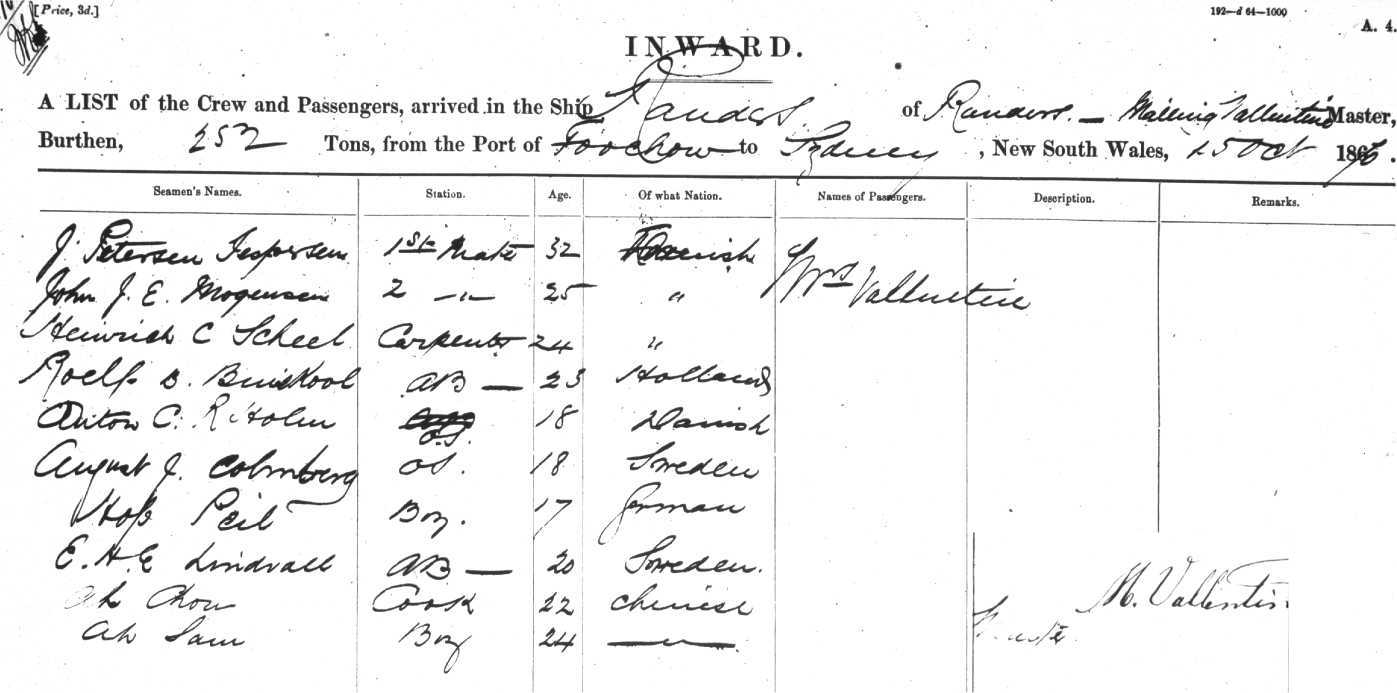 [Price, 3d.]
192—d 64—1000
A. 4.
INWARD.
A LIST of the Crew and Passengers, arrived in the Ship Randers of Randers — Vallentine Master,
Burthen, 252 Tons, from the Port of Foochow to Sydney, New South Wales, 25 Oct 187
Seamen's Names. Station. Age. Of what Nation. Names of Passengers. Description. Remarks.
J. Petersen Jespersen 1st Mate 32 Danish Mrs Vallentine
John J. E. Mogensen 2 —„— 25 „
Heinrich C Scheel Carpenter 24 „
Roelf B. Buiskool AB — 23 Holland
Anton C. R. Holm O.S. 18 Danish
August J. Colmberg OS. 18 Sweden
Peil Boy. 17 German
E. H. E Lindvall AB — 20 Sweden.
Ah Chou Cook 22 Chinese
Ah Sam Boy 24 —„—
M. Vallentin
Master